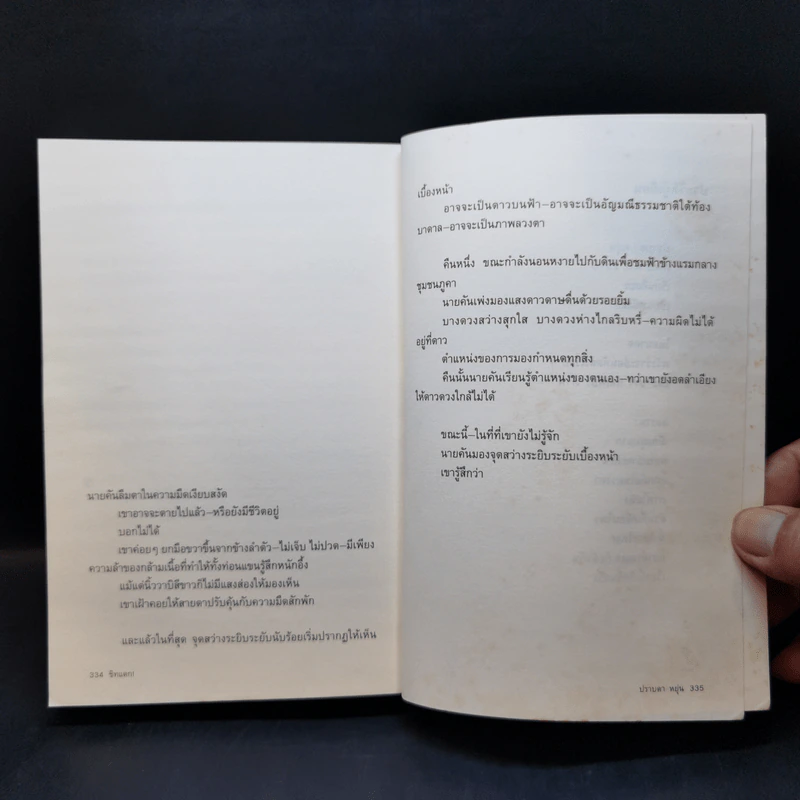 นายคันลืมตาในความมืดเงียบสงัด
เขาอาจจะตายไปแล้ว–หรือยังมีชีวิตอยู่
บอกไม่ได้
เขาค่อยๆ ยกมือขวาขึ้นจากข้างลำตัว–ไม่เจ็บ ไม่ปวด–มีเพียง
ความล้าของกล้ามเนื้อที่ทำให้ทั้งท่อนแขนรู้สึกหนักอึ้ง
แม้แต่นิ้ววาบิลีขาวก็ไม่มีแสงส่องให้มองเห็น
เขาเฝ้าคอยให้สายตาปรับคุ้นกับความมืดสักพัก
และแล้วในที่สุด จุดสว่างระยิบระยับนับร้อยเริ่มปรากฏให้เห็น
334 ชิทแตก!
เบื้องหน้า
อาจจะเป็นดาวบนฟ้า–อาจจะเป็นอัญมณีธรรมชาติใต้ท้อง
บาดาล–อาจจะเป็นภาพลวงตา
คืนหนึ่ง ขณะกำลังนอนหงายไปกับดินเพื่อชมฟ้าข้างแรมกลาง
ชุมชนภูคา
นายคันเพ่งมองแสงดาวดาษดื่นด้วยรอยยิ้ม
บางดวงสว่างสุกใส บางดวงห่างไกลริบหรี่–ความผิดไม่ได้
อยู่ที่ดาว
ตำแหน่งของการมองกำหนดทุกสิ่ง
คืนนั้นนายคันเรียนรู้ตำแหน่งของตนเอง–ทว่าเขายังอดลำเอียง
ให้ดาวดวงใกล้ไม่ได้
ขณะนี้–ในที่ที่เขายังไม่รู้จัก
นายคันมองจุดสว่างระยิบระยับเบื้องหน้า
เขารู้สึกว่า
ปราบดา หยุ่น 335